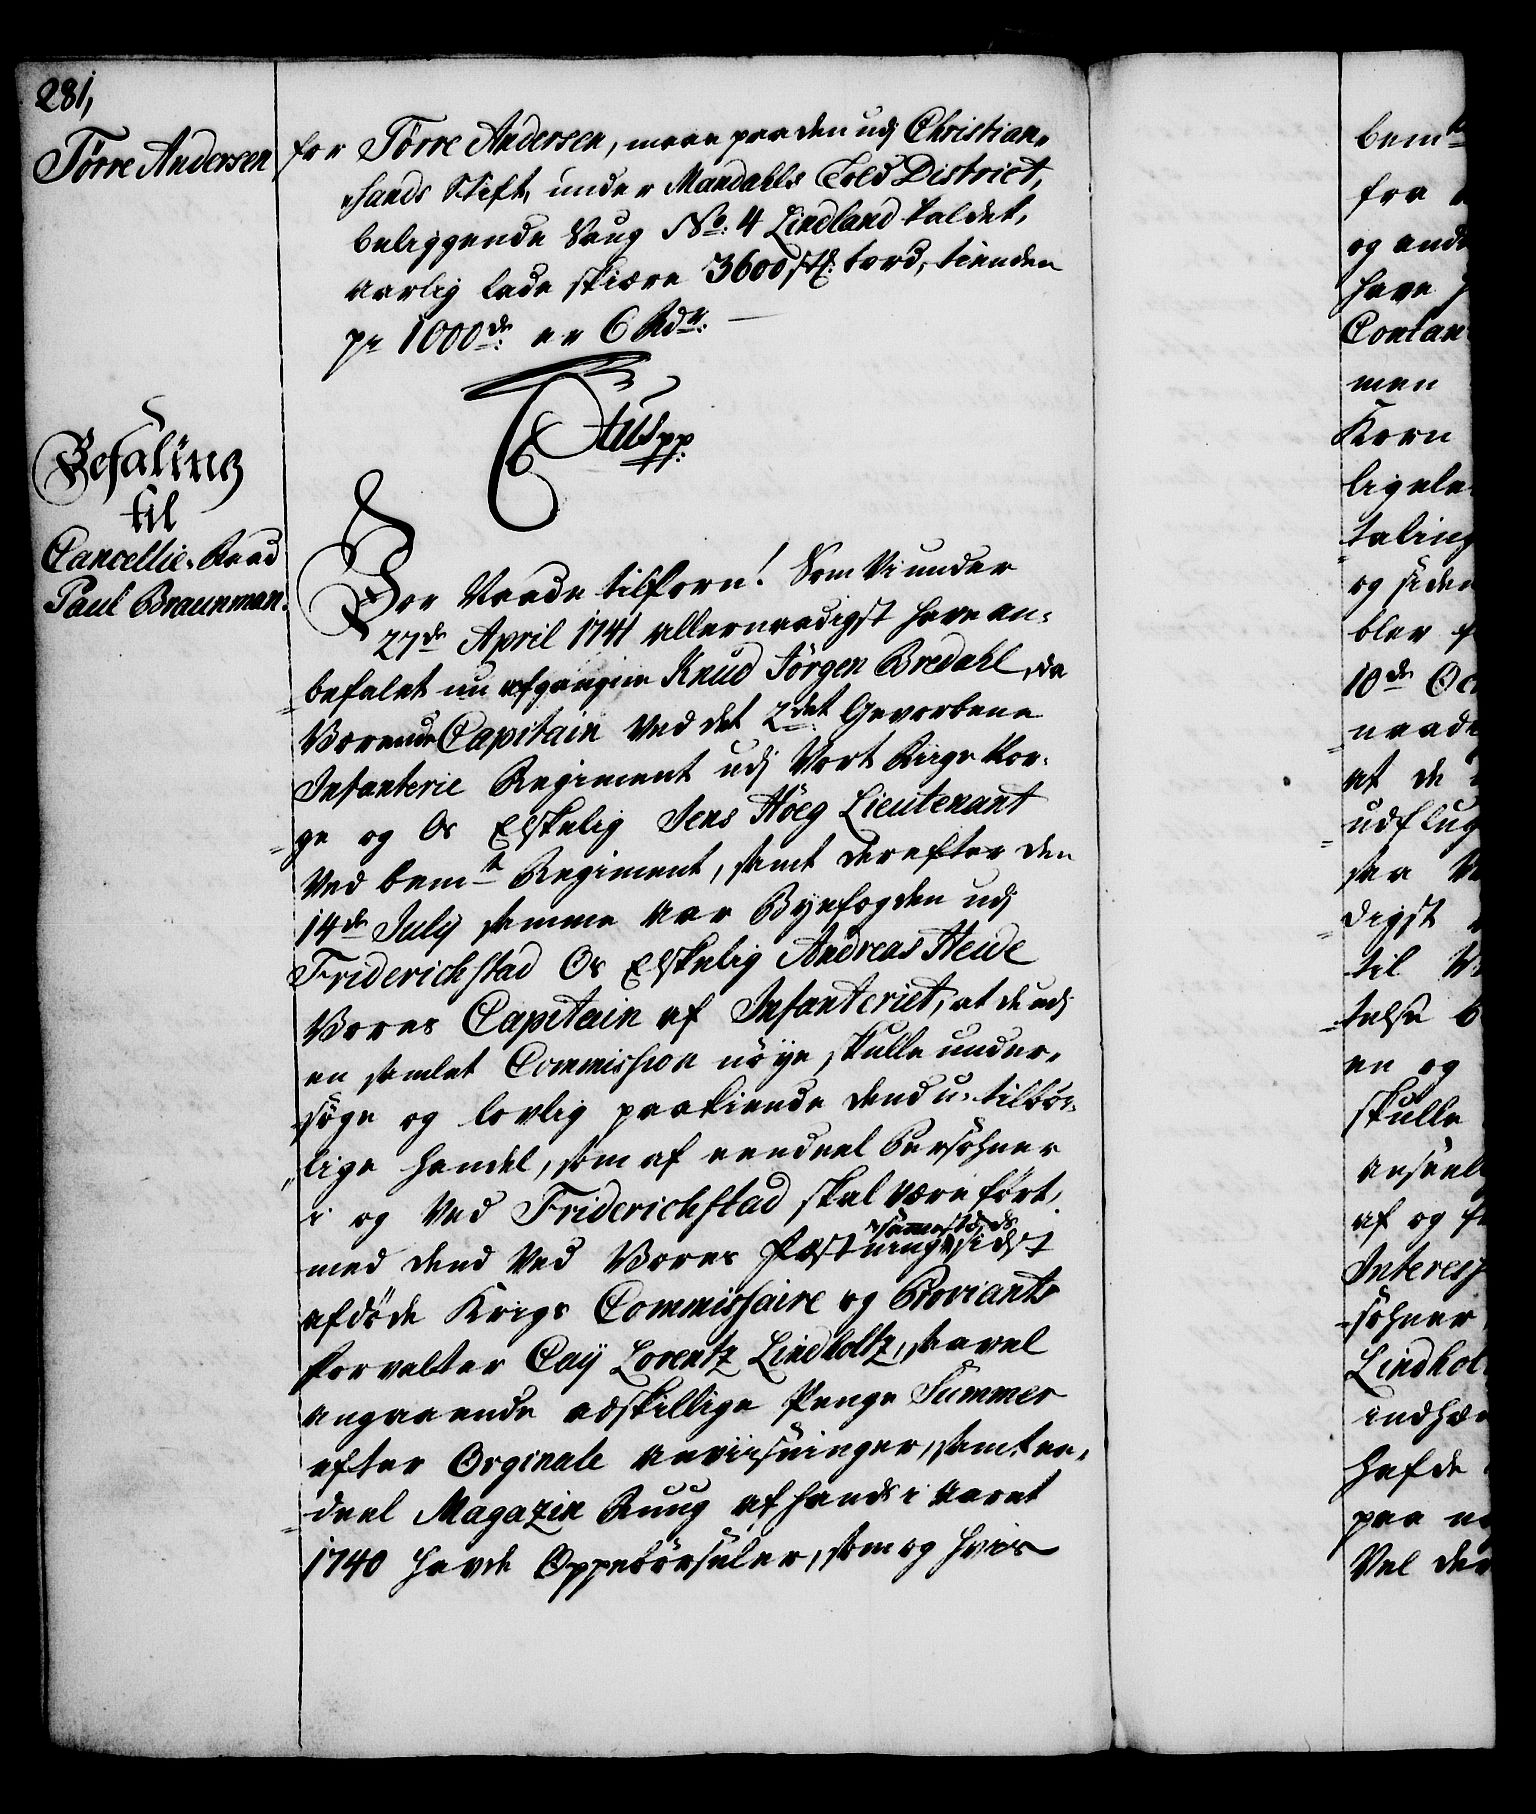 281,
Törre Andersen
for Törre Andersen, maae paa den udj Christian-
sands Stift, under Mandahls Told District,
beliggende Saug No: 4 Lindland kaldet,
aarlig lade skiære 3600 stk: bord, tienden
pr 1000de: er 6 Rdr:
Tituspp:
Befaling
til
Cancellie-Raad
Paul Braunman.
Vor Naade tilforn! Som Vi under
27de April 1741 allernaadigst have an-
befalet nu afgangne Knud Jörgen Bredahl, da
Værende Capitain Ved det 2det Gevorbene
Infanterie Regiment udj Vort Rige Nor-
ge og Os Elskelig Jens Höeg Lieutenant
Ved bemte Regiment, samt derefter den
14de July samme Aar Byefogden udj
Friderichstad Os Elskelig Andreas Heide
Vores Capitain af Infanteriet, at de udj
en samlet Commission nöye skulle under-
söge og lovlig paakiende dend u-tilbör-
lige handel, som af eendeel Persohner
i og Ved Friderichstad skal være fört,
med dend Ved Vores Fæstninge sammestæds sidst
afdöde Krigs Commissaire og Proviants
forvalter Caÿ Lorentz Lindholtz, saavel
angaaende adskillige Penge Summer
efter Orginale anviisninger, samt een-
deel Magazin Ruug af hands i Aaret
1740 havde Oppebörseler, som og hvis
bemte
fra
og and
have
Contan
men
Korn
ligele
taling
og siden
blev
10de Oc
naade
at de
udflug
saa
digst
til
telse
en og
skulle
anseel
af og
Interess
söhner
Lindhol
indhæn
hafde
paa
Vel der